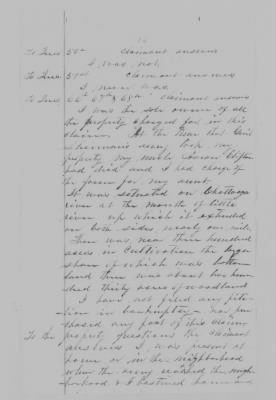 To Inter 50th claimant answers
I was not,
To Inter 51st claimant answers
I never was
To Inter 66th 67th & 68th claimant answers
I was the sole owner of all
the property charged for in this
claim. At the time that Genl
Sherman's army took my
property my uncle
had died and I had charge of
the farm for my aunt.
It was situated on Chattooga
river at the mouth of little
river up which it extended
on both sides nearly one mile.
There was near three hundred
acres in cultivation the larger
share of which was bottom
land there was about two hun
dred thirty acres of woodland
I have not filed any peti
tion in bankruptcy nor pur
chased any part of this
To the property questions the claimant
answers I was present at
home or in the neighborhood
when the army reached the neigh
borhood &